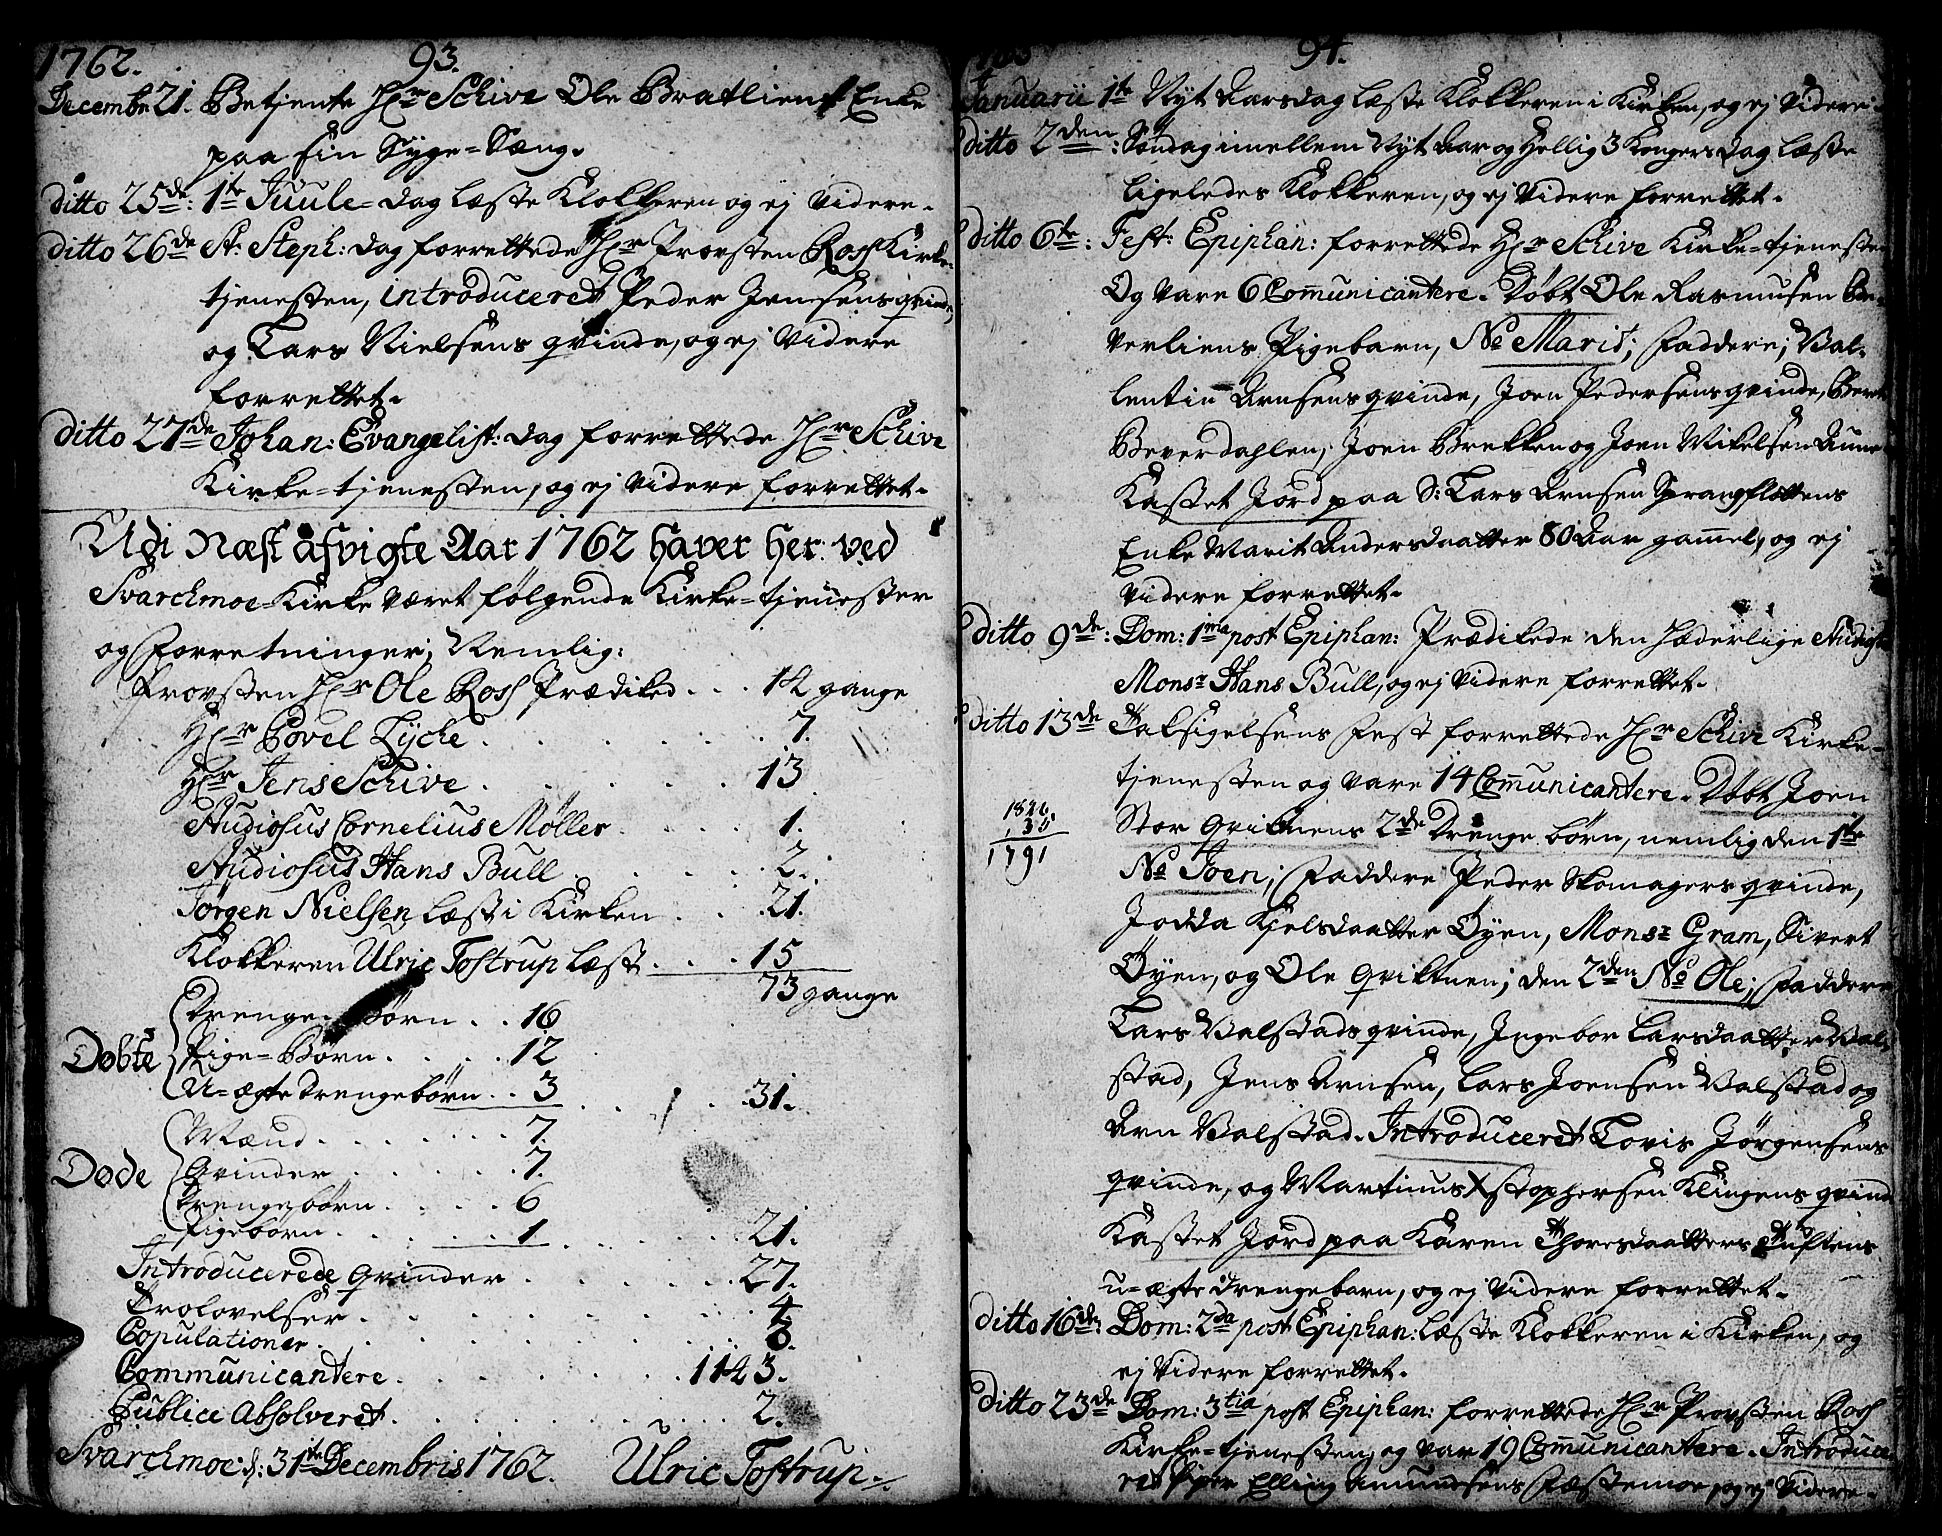 1762. 93.
Decembr 21. Betjente Hr Schive Ole Bratliens Enke
paa sin Syge=Sæng.
ditto 25de: 1te Juule=dag læste Klokkeren og ej videre.
ditto 26de St: Steph: dag forrettede Hr Provsten Ross Kirke
tjenesten, introduceret Peder Jensens qvinde,
og Lars Nielsens qvinde, og ej videre
forrettet.
ditto 27de Johan: Evangelist: dag forrettede Hr Schive
Kirke=tjenesten, og ej videre forrettet.
Udi Næst afvigte Aar 1762 haver her ved
Svarchmoe=Kirke været følgende Kirke=tjenester
og Forretninger; Nemlig:
Provsten Hr Ole Ross Prædiked . . . 14 gange
Hr Povel Lyche . . . 7.
Hr Jens Schive . . . 13
Studiosus Cornelius Møller . . . 1.
Studiosus Hans Bull . . . 2.
Jørgen Nielsen læst i Kirken . . . 21.
Klokkeren Ulric Tostrup læst . . . 15
73 gange
Drenge=Børn . . 16
Døbte Pige=Børn . . . 12
U=ægte drengebørn . . 3 . . . 31.
Mænd . . . 7.
Døde Qvinder . . . 7.
Drengebørn . . . 6
Pigebørn . . . 1 . . . 21.
Introducerede Qvinder . . . 27.
Trolovelser . . . 4
Copulationer . . . 6.
Communicantere . . . 1143.
Publice Absolveret . . . 2.
Svarchmoe d: 31te Decembris 1762. Ulric Tostrup.
94.
Januarii 1te Nyt Aarsdag læste Klokkeren i Kirken, og ej videre.
ditto 2den: Søndag imellem Nyt Aar og Hellig 3 Kongers dag læste
ligeledes Klokkeren, og ej videre forrettet.
ditto 6te: Fest: Epiphan: forrettede Hr Schive Kirke=tjenesten
Og vare 6 Comunicantere. Døbt Ole Rasmusen Be-
verliens Pigebarn, No Marit; Faddere; Val-
lentin Arnsens qvinde, Joen Pedersens qvinde, Beret
Beverdahlen, Joen Brekken og Joen Mikelsen Aune
Kastet Jord paa S: Lars Arnsen Sprangflottens
Enke Marit Andersdaatter 80 Aar gammel, og ej
videre forrettet.
ditto 9de: Dom: 1ma post Epiphan: Prædikede den Hæderlige Studiosus
Monsr Hans Bull, og ej videre forrettet.
ditto 13de Taksigelsens Fest forrettede Hr Schive Kirke=
tjenesten og vare 14 Comunicantere. Døbt Joen
1826
35
1791
Stor Qviknens 2de Drenge børn, nemlig den 1te
No Joen; Faddere Peder Skomagers qvinde,
Jodda Kjelsdaatter Øyen, Monsr Gram, Sivert
Øyen, og Ole Qviknen; den 2den No Ole; Faddere
Lars Valstads qvinde, Ingebor Larsdaatter Val-
stad, Jens Arnsen, Lars Joensen Valstad og
Arn Valstad. Introduceret Tovis Jørgensens
qvinde, og Martinus Xstophersen Klingens qvinde
Kastet Jord paa Karen Thoresdaatters Tuftens
u=ægte drengebarn, og ej videre forrettet.
ditto 16de: Dom: 2da post Epiphan: læste Klokkeren i Kirken, og
ej videre forrettet.
ditto 23de Dom: 3tia post Epiphan: forrettede Hr Provsten Ross
Kirke=tjenesten og var 19 Comunicantere. Introduce
ret Elling Amundsens Fæstemoe, og ej videre.